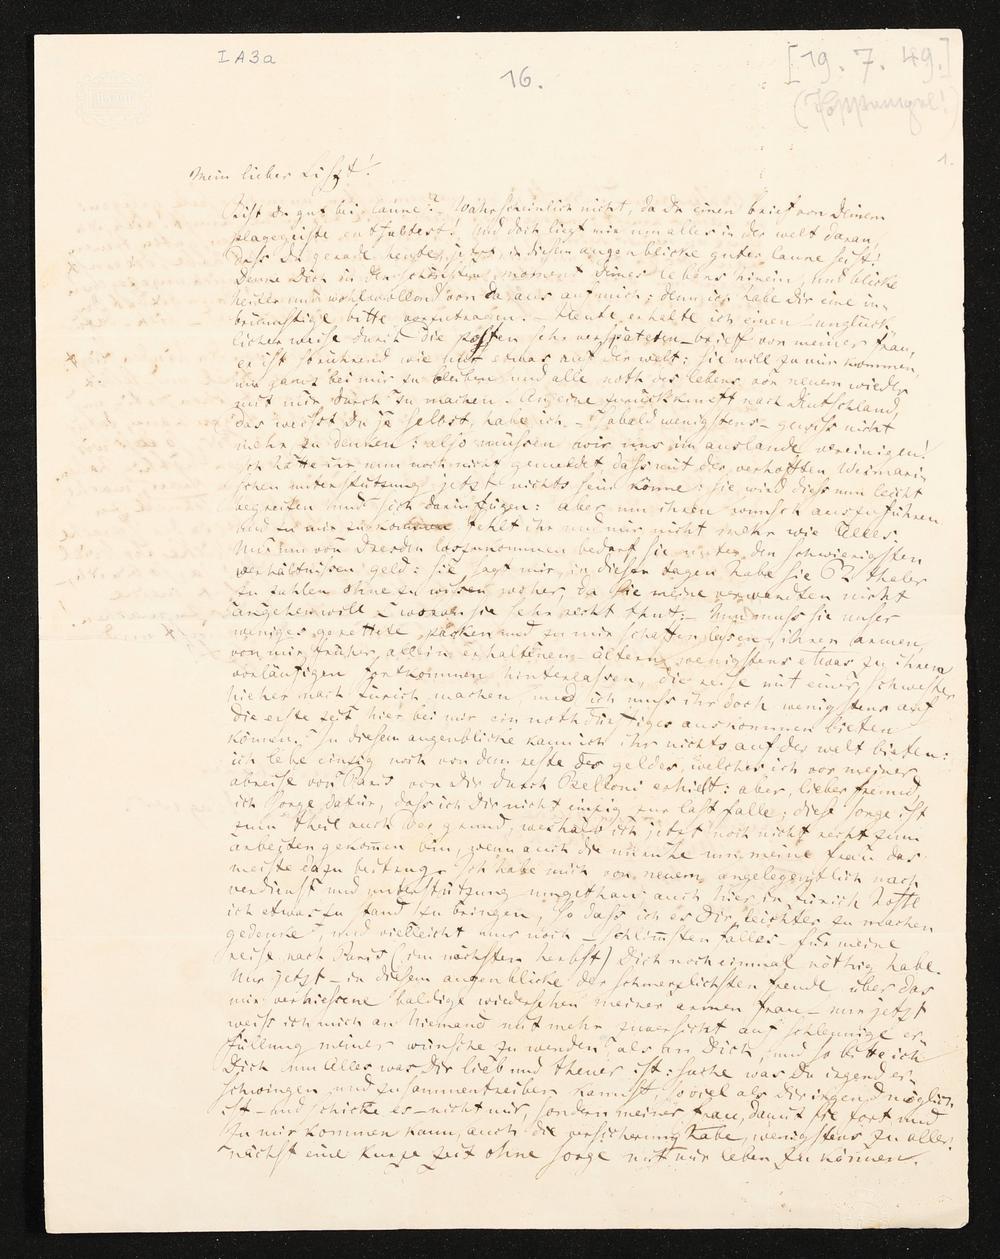 I A 3 a
16.
[19. 7. 49.]
1.
Mein lieber Liszt!
Bist Du gut bei laune? Wahrscheinlich nicht, da Du einen brief von Deinem
plagegeiste entfaltest! Und doch liegt mir nun alles in der welt daran,
dass Du gerade heute, jetzt, in diesem augenblicke guter laune seist!
Denke Dich in den schönsten moment Deines lebens hinein, und blicke
heiter und wohlwollend von da aus auf mich: denn ich habe dir eine in-
brünstige bitte vorzutragen. – Heute erhalte ich einen – unglück-
licher weise durch die posten sehr verspäteten – brief von meiner frau,
er ist so rührend wie nur etwas auf der welt: sie will zu mir kommen,
um ganz bei mir zu bleiben und alle noth des lebens von neuem wieder
mit mir durch zu machen. An eine zurückkunft nach Deutschland,
das weisst Du ja selbst, habe ich – sobald wenigstens – gewiss nicht
mehr zu denken: also müssen wir uns im auslande vereinigen!
Ich hatte ihr nun noch nicht gemeldet dass mit der verhofften Weimari-
schen unterstützung jetzt nichts sein könne: sie wird diess nun leicht
begreifen und sich darin fügen: aber um ihren wunsch auszuführen
und zu mir zu kommen fehlt ihr und mir nicht mehr wie Alles.
Um nun von Dresden loszukommen bedarf sie unter den schwierigsten
verhältnissen geld: sie sagt mir, in diesen tagen habe sie 62 thaler
zu zahlen ohne zu wissen woher, da sie meine verwandten nicht
angehen will – woran sie sehr recht thut. – Nun muss sie unser
weniges gerettete packen und zu mir schaffen lassen, ihren armen,
von mir früher allein erhaltenen – ältern wenigstens etwas zu ihrem
vorläufigen fortkommen hinterlassen, die reise mit einer schwester
hieher nach Zürich machen, und ich muss ihr doch wenigstens auf
die erste zeit hier bei mir ein nothdürftiges auskommen bieten
können. In diesem augenblicke kann ich ihr nichts auf der welt bieten:
ich lebe einzig noch von dem reste des geldes, welches ich vor meiner
abreise von Paris von dir durch Belloni erhielt: aber, lieber freund,
ich sorge dafür, dass ich Dir nicht einzig zur last falle; diese sorge ist
zum theil auch der grund, weshalb ich jetzt noch nicht recht zum
arbeiten gekommen bin, wenn auch die unruhe um meine frau das
meiste dazu beitrug. Ich habe mich von neuem angelegentlich nach
verdienst und unterstützung umgethan, auch hier in Zürich hoffe
ich etwas zu stand zu bringen, so dass ich es Dir leichter zu machen
gedenke, und vielleicht nur noch – schlimmsten falles – für meine
reise nach Paris (im nächsten herbst) Dich noch einmal nöthig habe.
Nur jetzt – in diesem augenblicke der schmerzlichsten freude über das
mir verhiessene baldige wiedersehen meiner armen frau – nur jetzt
weiss ich mich an Niemand mit mehr zuversicht auf schleunige er-
füllung meiner wünsche zu wenden als an Dich, und so bitte ich
Dich um Alles was Dir lieb und theuer ist: suche was Du irgend er-
schwingen und zusammentreiben kannst, soviel als Dir irgend möglich
ist – und schicke es – nicht mir, sondern meiner frau, damit sie fort und
zu mir kommen kann, auch die versicherung habe, wenigstens zu aller-
nächst eine kurze zeit ohne sorge mit mir leben zu können.